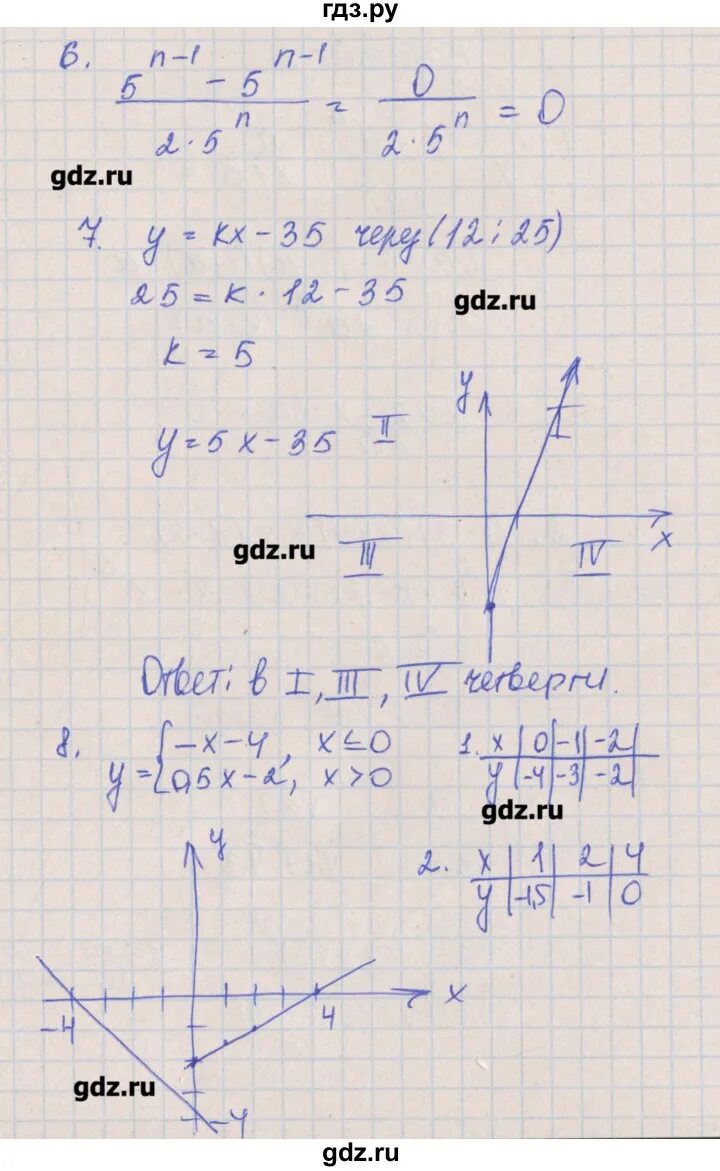 гдз.ру
6. (5^(n-1) - 5^(n-1)) / (2·5^n) = 0 / (2·5^n) = 0
gdz.ru
7. y = kx - 35 через (12; 25)
25 = k · 12 - 35
gdz.ru
k = 5
y
I
II
y = 5x - 35
x
gdz.ru
III
IV
Ответ: в I, III, IV четверти.
8. y = { -x - 4, x ≤ 0
0,5x - 2, x > 0
1. x | 0 | -1 | -2
y | -4 | -3 | -2
gdz.ru
2. x | 1 | 2 | 4
y | -1,5 | -1 | 0
y
x
-4
4
gdz.ru
-4
gdz.ru